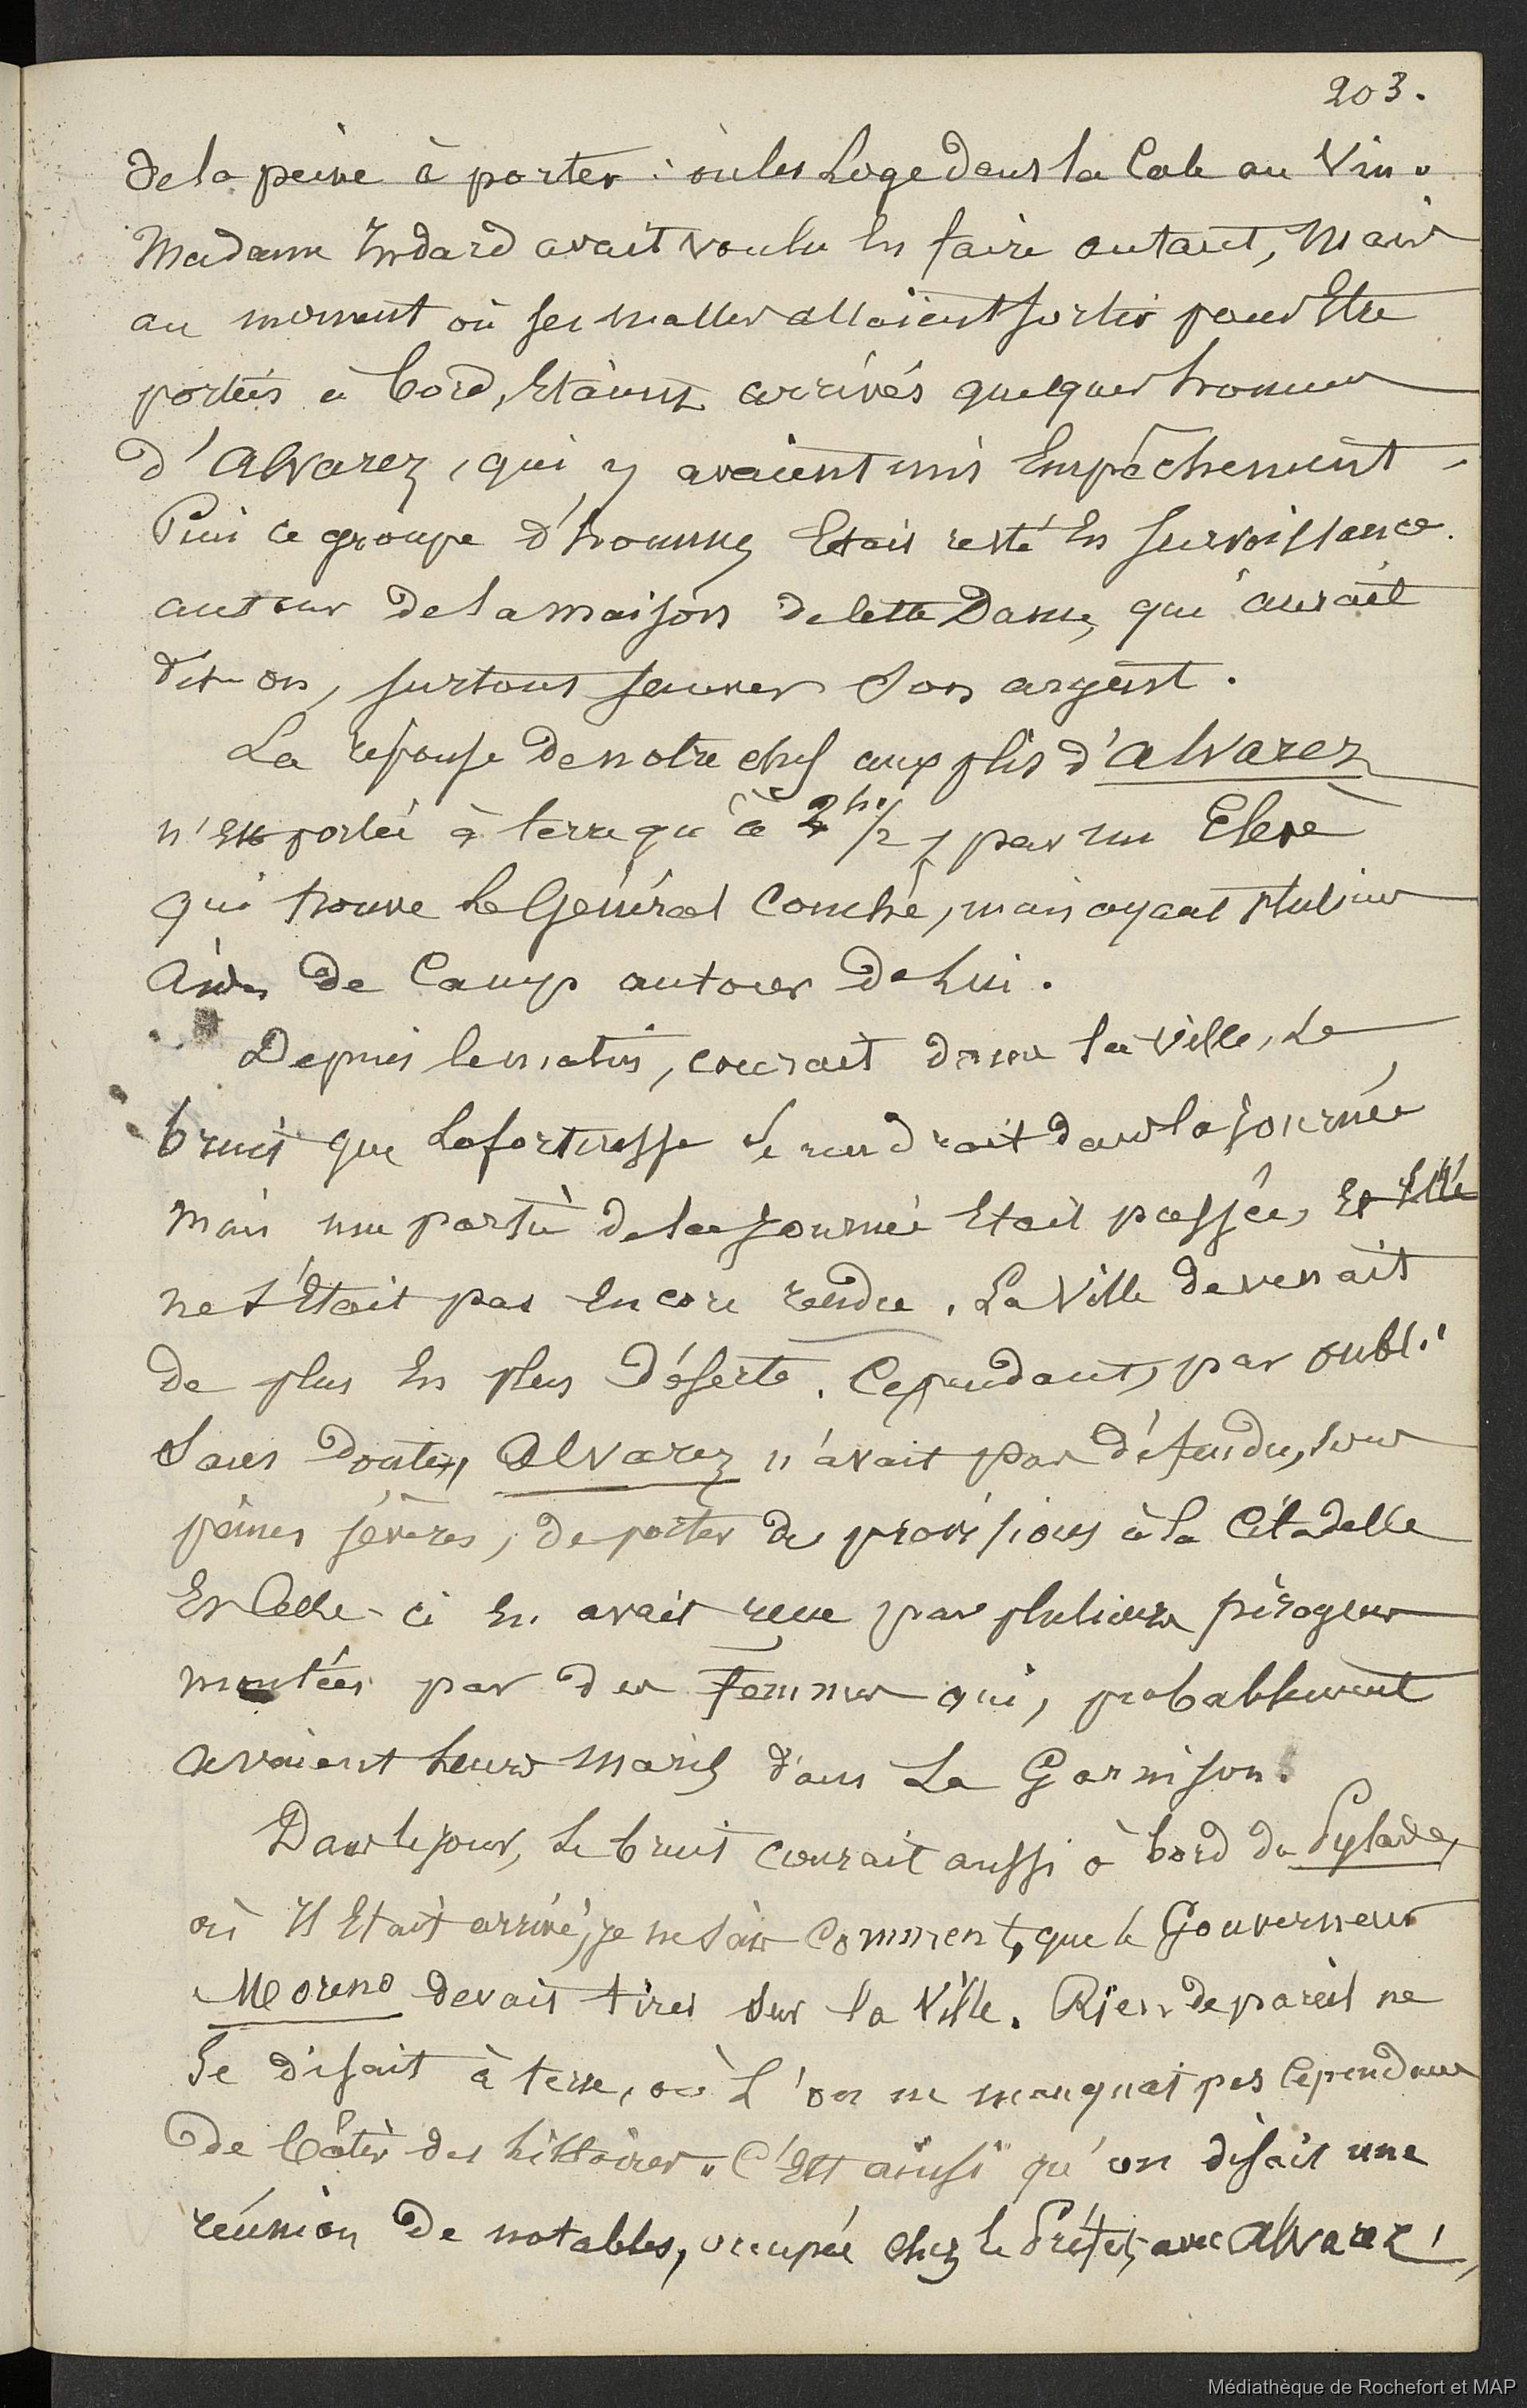 203.
de la peine à porter : on les Loge dans la Cale au Vin.
Madame avait voulu En faire autant, Mais
au moment où ses malles allaient sortir pour Etre
portées à bord, Etaient arrivés quelques hommes
d'Alvarez, qui y avaient mis Empêchement.
Puis ce groupe d'hommes Etait resté En surveillance
autour de la maison de cette Dame, qui aurait
dit-on, surtout sauver Son argent.
La réponse de notre chef aux plis d'Alvarez
n'est portée à terre qu'à 2h 1/2, par un Elève
qui trouve Le Général Couché, mais ayant plusieurs
Aides de Camp autour de Lui.
Depuis le matin, courait dans la Ville, Le
bruit que La forteresse se rendrait dans la journée
Mais une partie de la Journée Etait passée, Et Elle
ne s'Etait pas Encore rendue. La Ville devenait
de plus En plus déserte. Cependant, par oubli
Sans doute, Alvarez n'avait pas défendu, sous
peines sévères, de porter des provisions à la Citadelle
Et Celle-ci En avait reçu par plusieurs pirogues
montées par des femmes qui, probablement
avaient Leurs Maris dans La Garnison.
Dans le jour, Le bruit courait aussi à bord du Pylade,
où Il Etait arrivé, je ne sais Comment, que le Gouverneur
Moreno devait tirer Sur la Ville. Rien de pareil ne
Se disait à terre, où L'on ne manquait pas Cependant
de bâtir des histoires. C'Est ainsi qu'on disait une
réunion de notables, occupée chez le Préfet, avec Alvarez,
Médiathèque de Rochefort et MAP